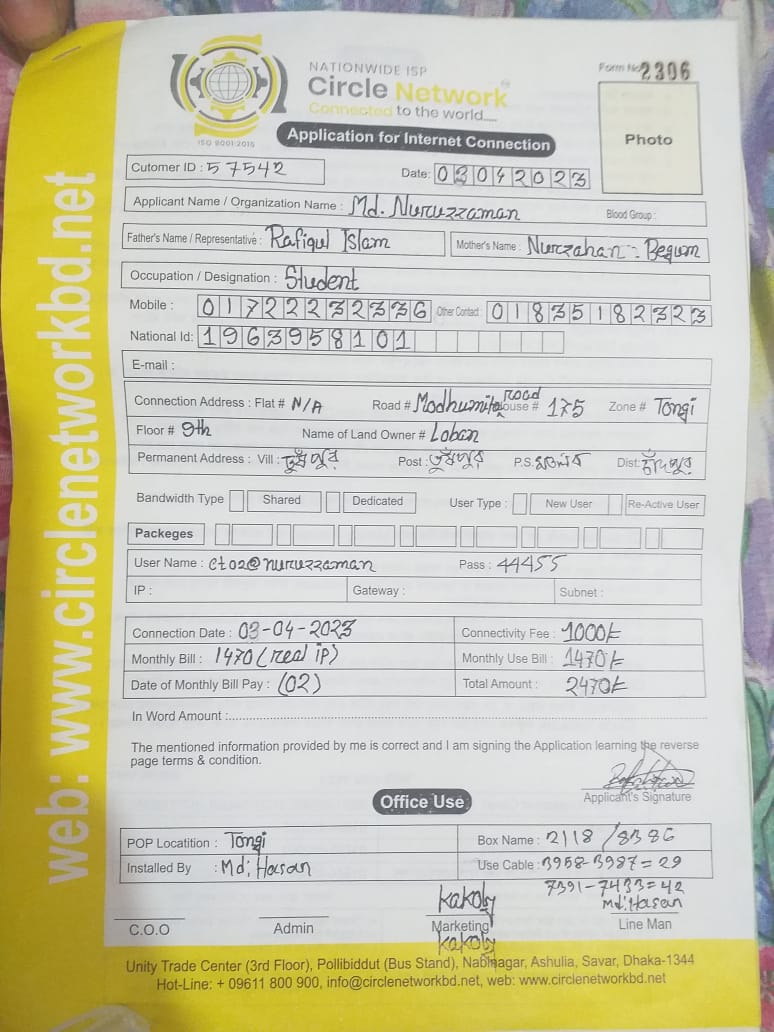 NATIONWIDE ISP
Circle Network
Connected to the world....
ISO 9001:2015
Form No 2306
Photo
Application for Internet Connection
Cutomer ID : 57542 Date: 03042023
Applicant Name / Organization Name : Md. Nuruzzaman Blood Group :
Father's Name / Representative : Rafiqul Islam Mother's Name : Nurzahan - Begum
Occupation / Designation : Student
Mobile : 01722232336 Other Contact : 01835182323
National Id: 1963958101
E-mail :
Connection Address : Flat # N/A Road # Modhumita Road House # 175 Zone # Tongi
Floor # 9th Name of Land Owner # Loban
Permanent Address : Vill : Post : P.S. Dist: চাঁদপুর
Bandwidth Type Shared Dedicated User Type : New User Re-Active User
Packeges
User Name : ct02@nuruzzaman Pass : 44455
IP : Gateway : Subnet :
Connection Date : 03-04-2023 Connectivity Fee : 1000/-
Monthly Bill : 1470 (real ip) Monthly Use Bill : 1470/-
Date of Monthly Bill Pay : (02) Total Amount : 2470/-
In Word Amount :
The mentioned information provided by me is correct and I am signing the Application learning the reverse
page terms & condition.
Applicant's Signature
Office Use
POP Locatition : Tongi Box Name : 2118 / 8386
Installed By : Md: Hasan Use Cable : 3958-3987=29
7391-7433=42
Kakoly Md: Hasan
C.O.O Admin Marketing Line Man
Kakoly
Unity Trade Center (3rd Floor), Pollibiddut (Bus Stand), Nabinagar, Ashulia, Savar, Dhaka-1344
Hot-Line: + 09611 800 900, info@circlenetworkbd.net, web: www.circlenetworkbd.net
web: www.circlenetworkbd.net